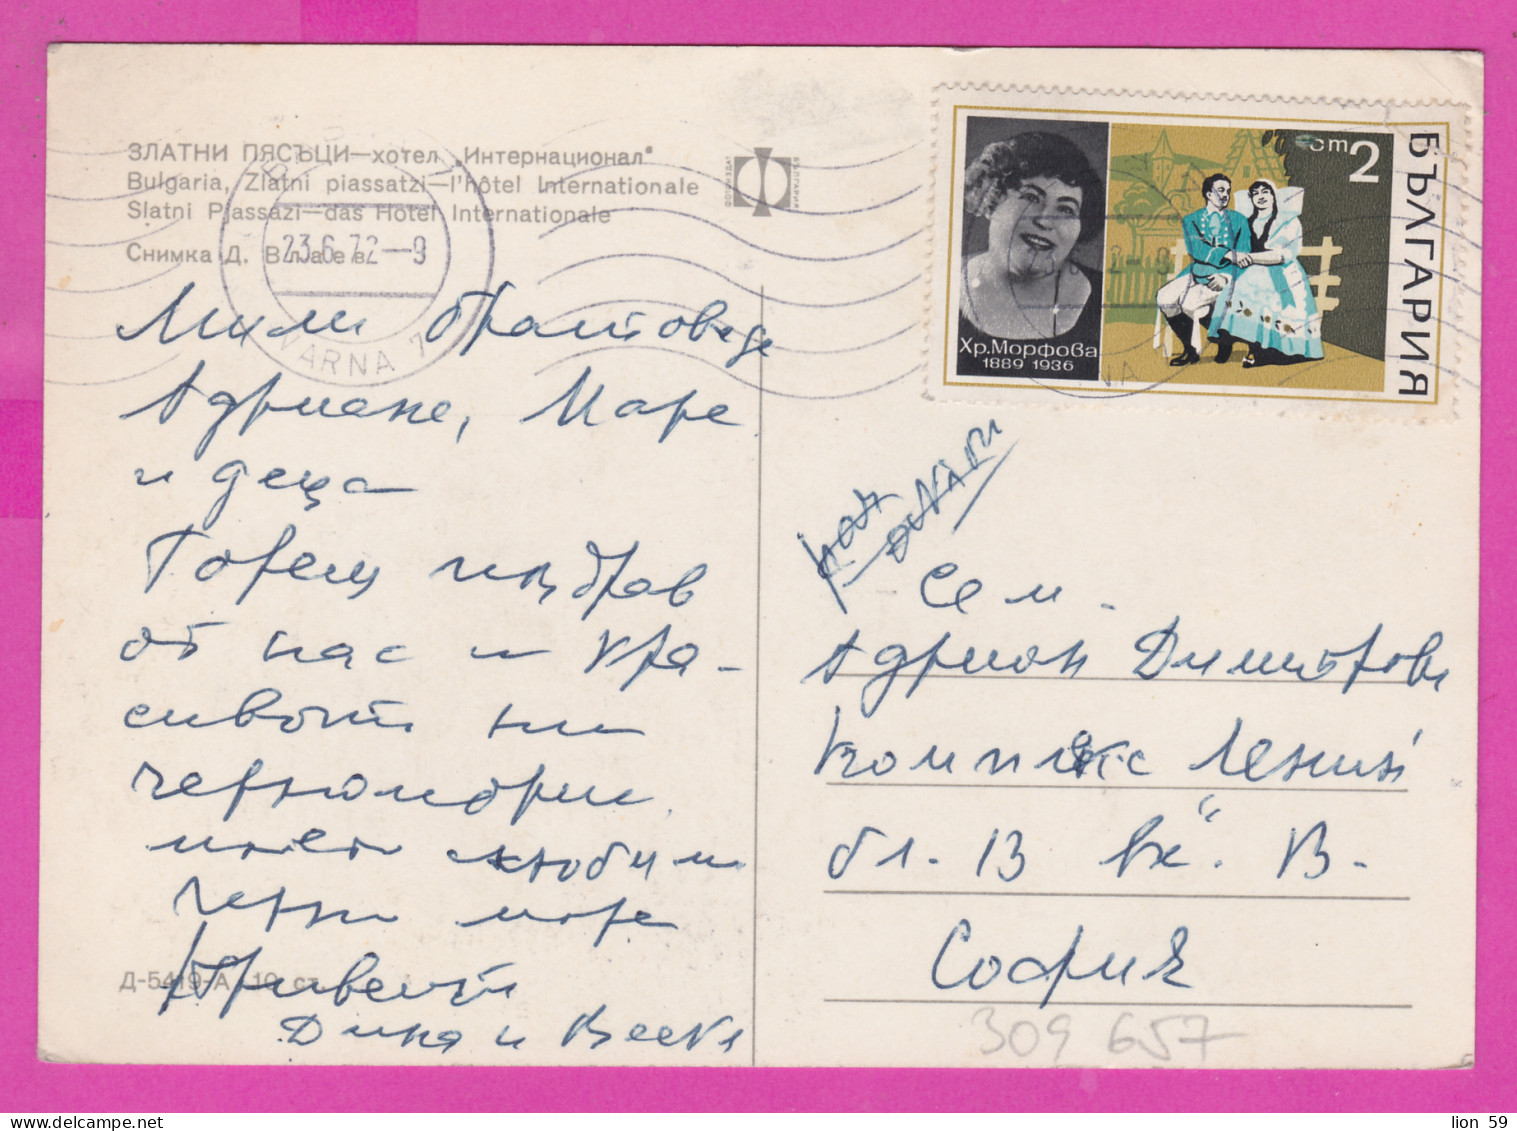 ЗЛАТНИ ПЯСЪЦИ—хотел „Интернационал"
Bulgaria, Zlatni piassatzi—l'hôtel Internationale
Slatni Pjassazi—das Hotel Internationale
Снимка Д. Влаев
23.6.72-9
VARNA 1
ФОТОИЗДАТ
БЪЛГАРИЯ
ст 2
БЪЛГАРИЯ
Хр.Морфова
1889 1936
Мили братовчеди
Адриане, Маре
и деца
Горещ поздрав
от нас и кра-
сивото ни
черноморие
любим
черно море
Привет
Дина и Веска
Сем.
Адриан Димитрови
Комплекс Ленин
бл. 13 вх. В.
София
Д-5419-А 10 ст.
309 657
lion 59